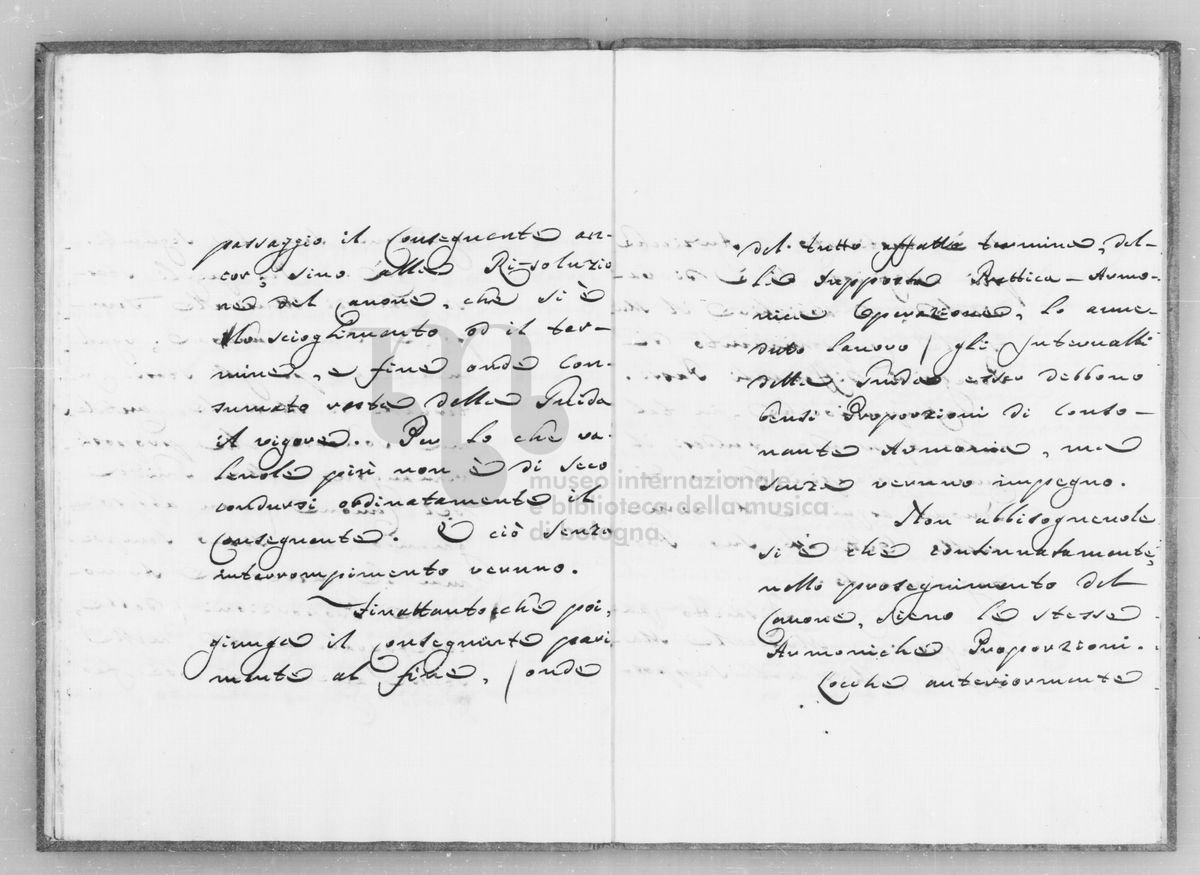 passaggio il Conseguente an-
cor, sino alla Ri-soluzio
ne del Canone, che si è
lo scioglimento, od il ter-
mine, e fine onde con-
sumato resta della Guida
il vigore. Per lo che va-
levole più non è di seco
condursi ordinatamente il
Conseguente. E ciò senza
interrompimento veruno.
Finattanto, che poi,
giunga il conseguente pari
mente al fine, / onde
del tutto affatto termine, del-
la supposta Prattica-Armo-
nica Operazione, lo anne-
duto lavoro / gli Intervalli
della Guida esser debbono
bensì Proporzioni di Conso-
nante Armonia, ma
senza veruno impegno.
Non abbisognevole
si è che continuatamente,
nello proseguimento del
Canone, sieno le stesse
Armoniche Proporzioni.
Locche anteriormente
museo internazionale
e biblioteca della musica
di bologna